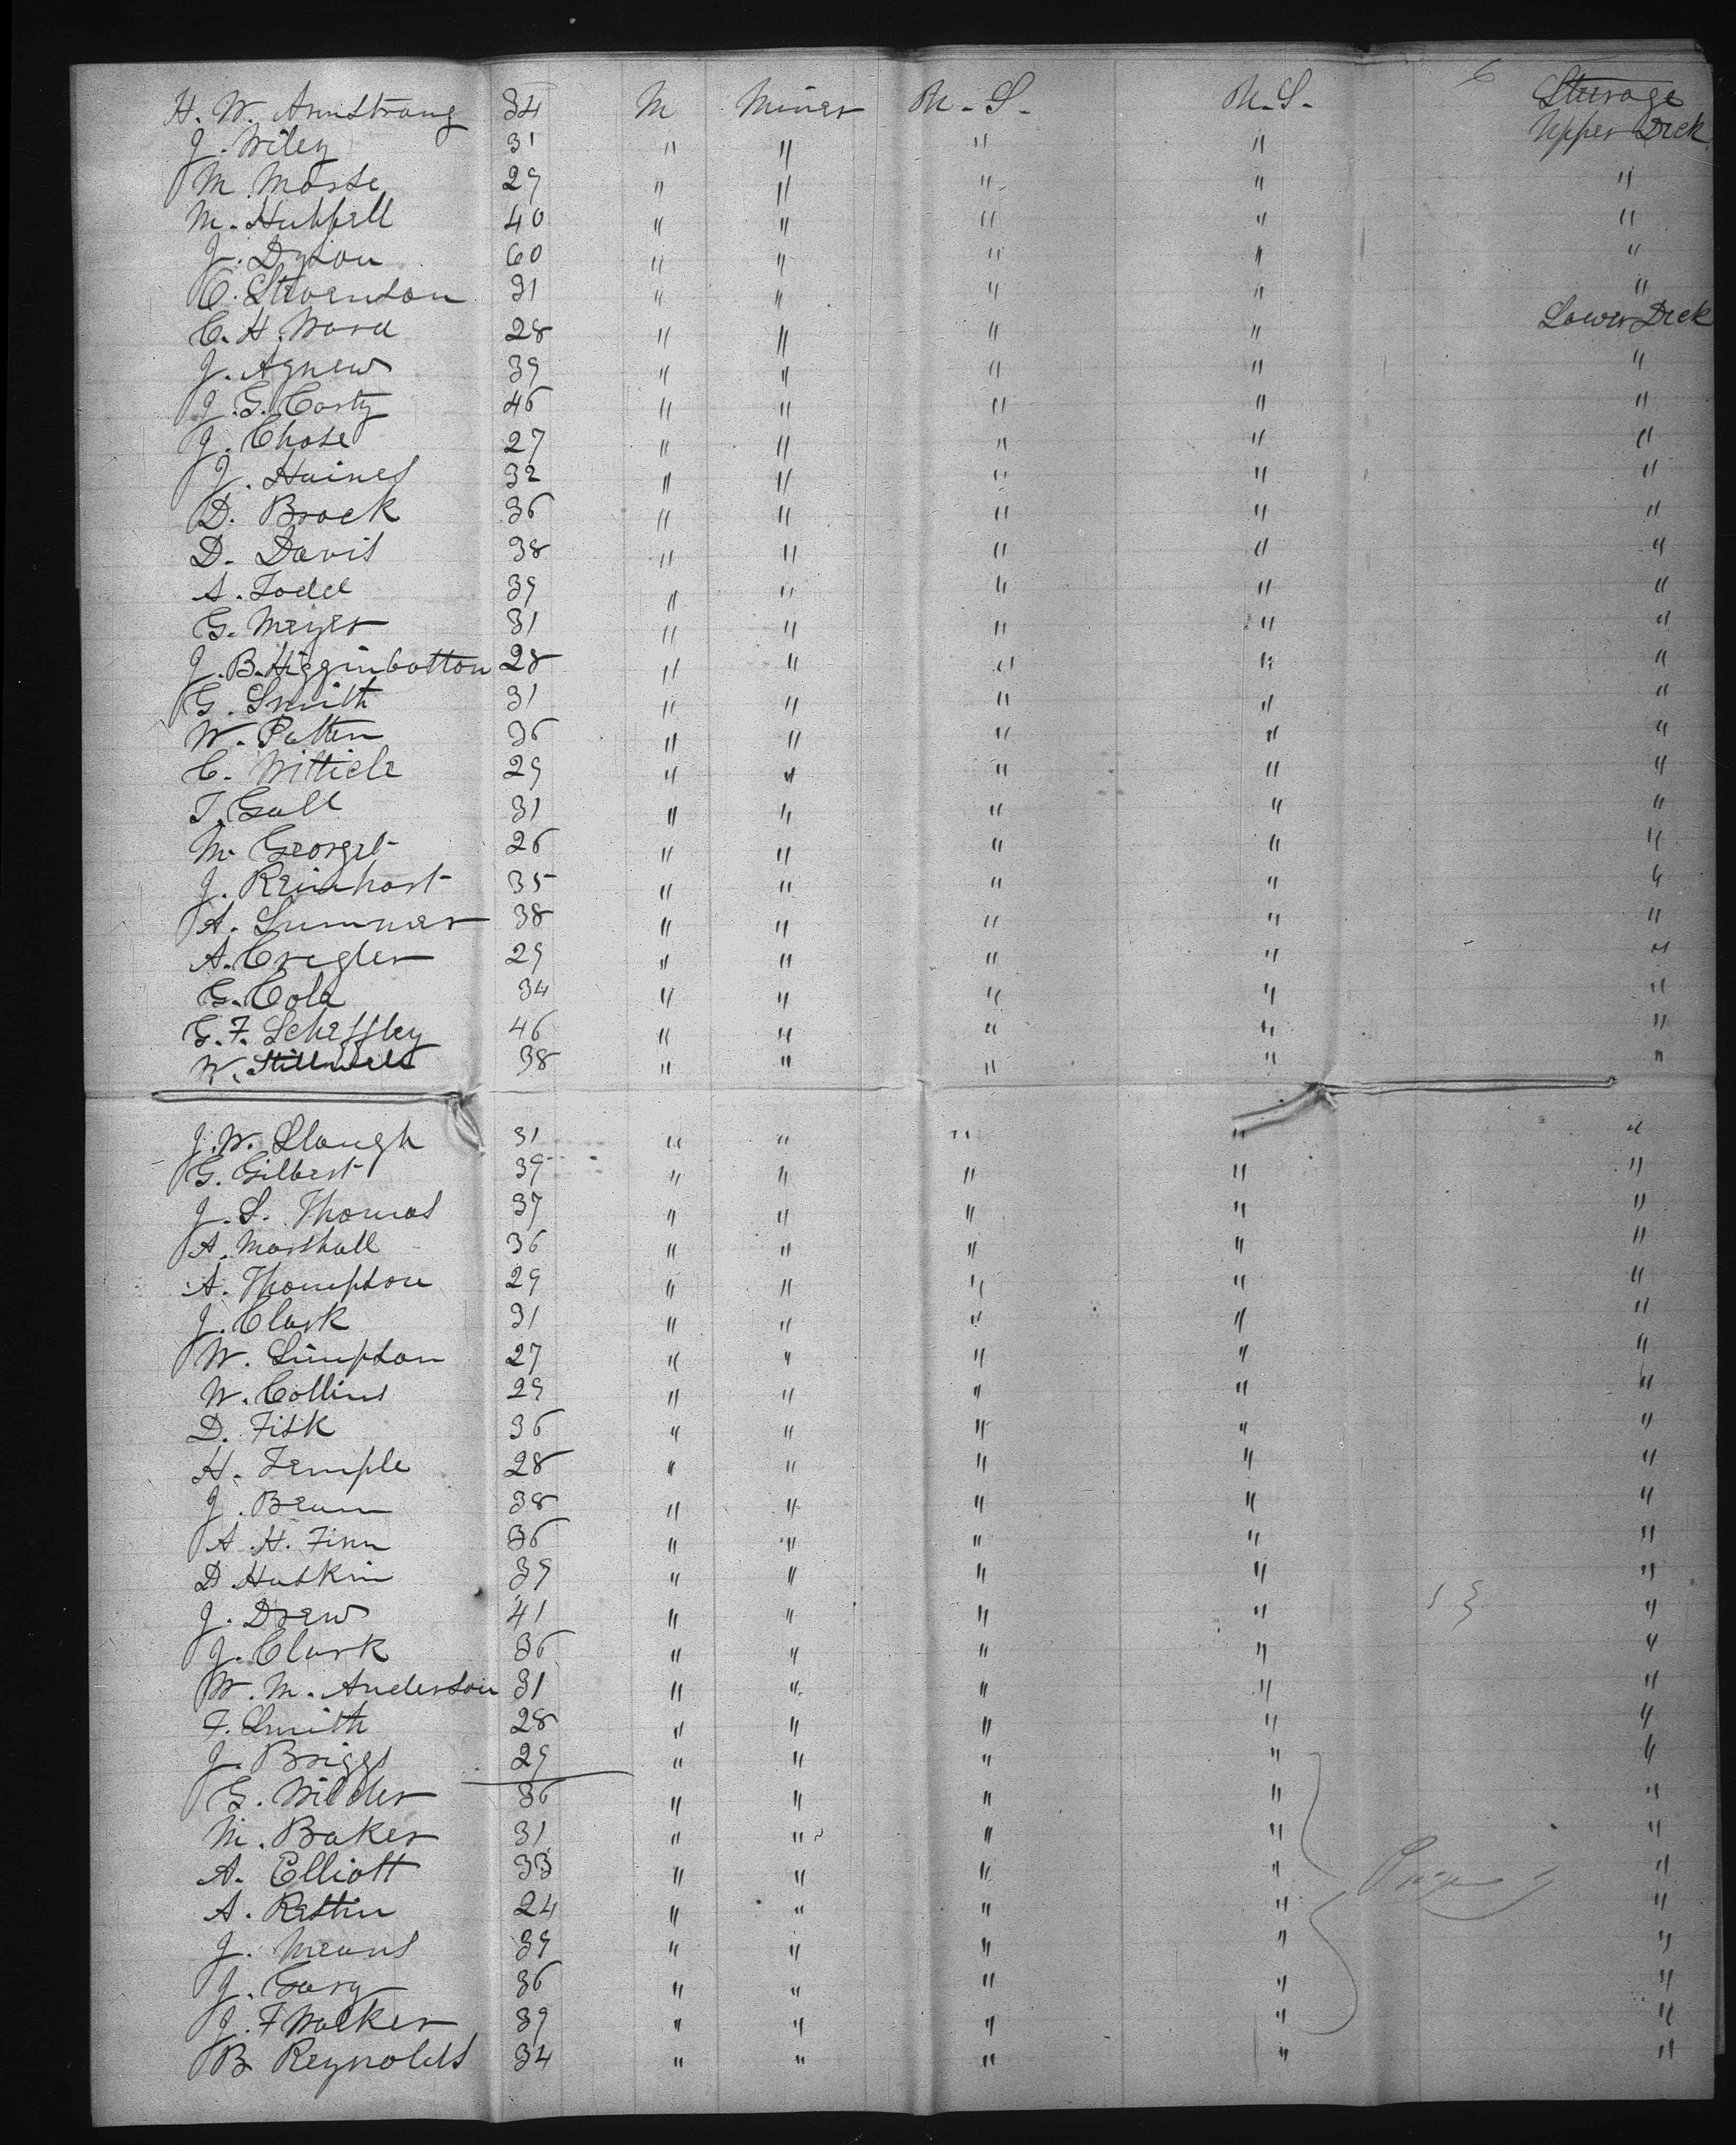 6
H. W. Armstrong 34 M Miner U.S. U.S. Steerage
Upper Deck
J. Wiley 31 " " " "
M. Morse 29 " " " " "
M. Hubbell 40 " " " " "
J. Dyson 60 " " " " "
C. Stevenson 31 " " " " "
C. H. Ward 28 " " " " Lower Deck
J. Agnew 39 " " " " "
J. G. Carty 46 " " " " "
J. Chase 27 " " " " "
J. Haines 32 " " " " "
D. Brock 36 " " " " "
D. Davis 38 " " " " "
A. Todd 39 " " " " "
G. Meyer 31 " " " " "
J. B. Higginbotton 28 " " " " "
G. Smith 31 " " " " "
W. Patten 36 " " " " "
C. 29 " " " " "
T. Gall 31 " " " " "
M. George 26 " " " " "
J. Reinhart 35 " " " " "
A. Sumner 38 " " " " "
A. Cregler 29 " " " " "
G. Cole 34 " " " " "
G. F. Scheffley 46 " " " " "
W. Stillwell 38 " " " " "
J. W. Slough 31 " " " " "
G. Gilbert 39 " " " " "
J. S. Thomas 37 " " " " "
A. Marshall 36 " " " " "
A. Thompson 29 " " " " "
J. Clark 31 " " " " "
W. Simpson 27 " " " " "
W. Collins 29 " " " " "
D. Fisk 36 " " " " "
H. Temple 28 " " " " "
J. Beam 38 " " " " "
A. H. Finn 36 " " " " "
D. Huskin 39 " " " " "
J. Drew 41 " " " " "
J. Clark 36 " " " " "
W. M. Anderson 31 " " " " "
F. Smith 28 " " " " "
J. Briggs 29 " " " " "
G. Wilder 36 " " " " "
M. Baker 31 " " " " "
A. Elliott 33 " " " " "
A. Rettin 24 " " " " "
J. Means 39 " " " " "
J. Gary 36 " " " " "
J. F. Walker 39 " " " " "
B. Reynolds 34 " " " " "